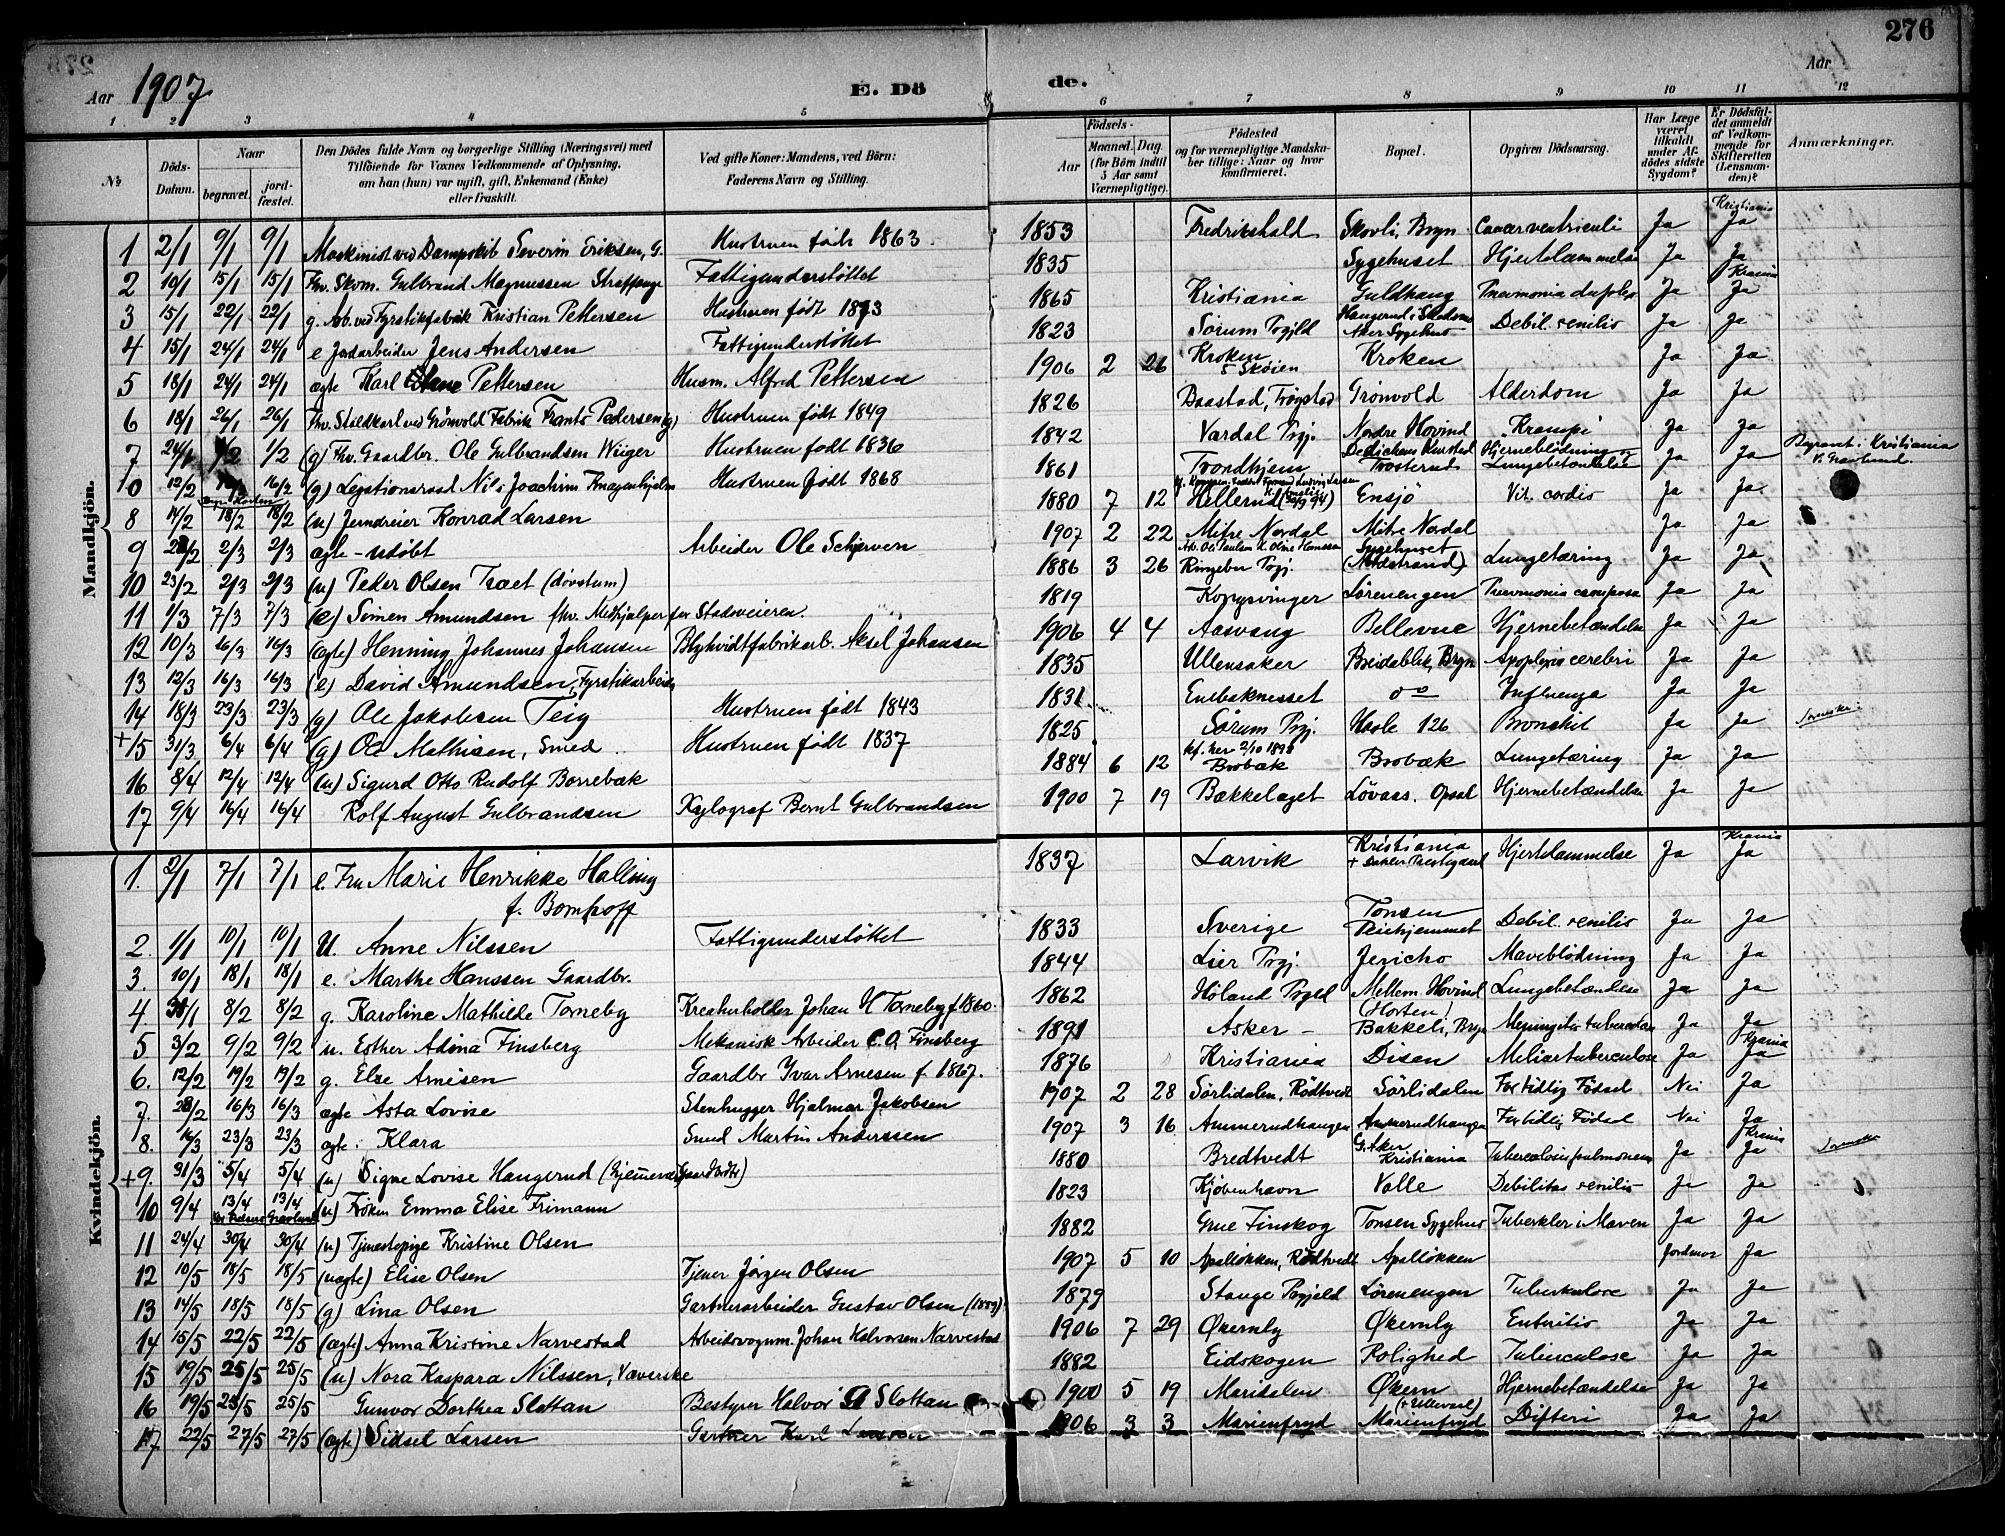 276
Aar 1907
E. Dö
de.
Aar
1 2 3 4 5 6 7 8 9 10 11 12
№
Döds-Datum.
Naar
begravet.
jord-fæstet.
Den Dödes fulde Navn og borgerlige Stilling (Næringsvei) med
Tilföiende for Voxnes Vedkommende af Oplysning,
om han (hun) var ugift, gift, Enkemand (Enke)
eller fraskilt.
Ved gifte Koner: Mandens, ved Börn:
Faderens Navn og Stilling.
Födsels-
Aar
Maaned.
Dag.
(for Börn indtil 5 Aar samt Værnepligtige).
Födested
og for værnepligtige Mandska-
ber tillige: Naar og hvor
konfirmeret.
Bopæl.
Opgiven Dödsaarsag.
Har Læge været tilkaldt under Afdödes sidste Sygdom?
Er Dödsfaldet anmeldt af Vedkommende for Skifteretten (Lensmanden)?
Anmærkninger.
Mandkjön.
1 2/1 9/1 9/1 Maskinist ved Dampskib Severin Eriksen, G. Hustruen födt 1863. 1853 Fredrikshald Skovli, Bryn Cancer ventriculi Ja Kristiania Ja
2 10/1 15/1 15/1 Fhv. Skom. Gulbrand Magnussen Fattigunderstöttet 1835 Sygehuset Hjertelammelse Ja Ja
3 15/1 22/1 22/1 g. Arb. ved Fyrstikfabrik Kristian Pettersen Hustruen födt 1873 1865 Kristiania Guldhaug Pneumonia duplex Ja Krania Ja
4 15/1 24/1 24/1 e Jordarbeider Jens Andersen Fattigunderstöttet 1823 Sörum Pgjld Haugerud i Aker Sygehus Debil. senilis Ja Ja
5 18/1 24/1 24/1 ægte Karl Pettersen Husm. Alfred Pettersen 1906 2 26 Kroken Skøien Kroken Ja Ja
6 18/1 26/1 26/1 Fhv. Staldkarl ved Grönvold Fabrik Frants Pedersen (g) Hustruen födt 1849 1826 Baastad, Trøgstad Grönvold Alderdom Ja Ja
7 24/1 1/2 1/2 (g) Fhv. Gaardbr. Ole Gulbrandsen Wüger Hustruen födt 1836 1842 Vardal Pgj. Nordre Hovind "Krampe" Ja Ja
0 12/2 16/2 (g) Legationsraad Nils Joachim Hustruen födt 1868 1861 Trondhjem Dedichens Kursted Trosterud Hjerneblödning og Lungebetændelse Ja Ja Begravet i Kristiania V. Gravlund.
8 14/2 18/2 18/2 (u) Jerndreier Konrad Larsen 1880 7 12 Hellerud Ensjö Vit. cordis Ja Ja
9 28/2 2/3 2/3 ægte - udöbt Arbeider Ole Schjerven 1907 2 22 Mitre Nordal Mitre Nordal Ja Ja
10 23/2 2/3 2/3 (u) Peder Olsen Traet (dövstum) 1886 3 26 Ringebu Pgj. Sygehuset (Nordstrand) Lungetæring Ja Ja
11 1/3 7/3 7/3 (e) Simen Amundsen fhv. Medhjælper for Stadsveieren. 1819 Kongsvinger Lörenengen Pneumonia crouposa Ja Ja
12 10/3 16/3 16/3 (ægte) Henning Johannes Johansen Blyhvidtfabrikarb. Aksel Johansen 1906 4 4 Aasvang Bellevue Hjernebetændelse Ja Ja
13 12/3 16/3 16/3 (e) David Amundsen, Fyrstikarbeider 1835 Ullensaker Breidablik, Bryn Apoplexia cerebri Ja Ja
14 18/3 23/3 23/3 (g) Ole Jakobsen Teig Hustruen födt 1843 1831 Enebaknesset do Influenza Ja Ja
+15 31/3 6/4 6/4 (g) Ole Mathisen, Smed. Hustruen födt 1837 1825 Sörum Pgj. Hasle 126 Bronchit Ja Ja Svenske.
16 8/4 12/4 12/4 (u) Sigurd Otto Rudolf Borrebæk 1884 6 12 kf. her 2/10 1898 Brobæk Brobæk Lungetæring Ja Ja
17 9/4 16/4 16/4 Rolf August Gulbrandsen Xylograf Bernt Gulbrandsen 1900 7 19 Bækkelaget Lövaas. Opsal Hjernebetændelse Ja Ja
Kvindekjön.
1. 2/1 7/1 7/1 e. Fru Marie Henrikke Halling f. Bomhoff 1837 Larvik Kristiania Hjertelammelse Ja Krania Ja
2. 1/1 10/1 10/1 U. Anne Nilssen Fattigunderstöttet 1833 Sverige Tonsen Pleiehjemmet Debil. senilis Ja Ja
3. 10/1 18/1 18/1 e. Marthe Hanssen Gaardbr. 1844 Lier Pgj. Jericho Maveblödning Ja Ja
4 31/1 8/2 8/2 g. Karoline Mathilde Torneby Kreaturholder Johan H Torneby f 1860. 1862 Höland Pgjld Mellem Hovind Lungebetændelse Ja Ja
5 3/2 9/2 9/2 u. Esther Adina Finsberg Mekanisk Arbeider C.O. Finsberg 1891 Asker - (Horten) Bakkeli, Bryn Meningitis tuberculosa Ja Ja
6. 12/2 19/2 19/2 g. Else Arnesen Gaardbr Ivar Arnesen f. 1867. 1876 Kristiania Disen Miliærtuberculose Ja Krania Ja
7. 28/2 16/3 16/3 ægte Asta Lovise Stenhugger Hjalmar Jakobsen 1907 2 28 Sörlidalen, Rödtvedt Sörlidalen For tidlig Födsel Nei Ja
8. 16/3 23/3 23/3 ægte. Klara Smed Martin Anderssen 1907 3 16 Ammerudhaugen Ammerudhaugen For tidlig Födsel Nei Ja
+9. 31/3 5/4 5/4 (u) Signe Lovise Haugerud 1880 Bredtvedt G. Aker Kristiania Tuberculosis pulmonum Ja Krania Ja Svenske
10 9/4 13/4 13/4 Vor Frelsers Gravlund (u) Fröken Emma Elise Frimann 1823 Kjöbenhavn Valle Debilitas senilis Ja Ja
11 24/4 30/4 30/4 (u) Tjenestepige Kristine Olsen 1882 Grue Finskog Tonsen Sygehus Tuberkler i Maven Ja Ja
12 10/5 18/5 18/5 (uægte) Elise Olsen Tjener Jörgen Olsen 1907 5 10 Apallökken, Rödtvedt Apallökken Jordmor Ja
13 14/5 18/5 18/5 (g) Lina Olsen Gartnerarbeider Gustav Olsen (1889) 1879 Stange Pgjeld Lörenengen Tuberkulose Ja Ja
14 15/5 22/5 22/5 (ægte) Anna Kristine Narvestad Arbeidsvognm. Johan Halvorsen Narvestad 1906 7 29 Økernly Økernly Enteritis Ja Ja
15 19/5 25/5 25/5 (u) Nora Kaspara Nilssen, Væverske 1882 Eidskogen Rolighed Tuberculose Ja Ja
16 19/5 25/5 25/5 Gunvor Dorthea Slottan Bestyrer Halvor A Slottan 1900 5 19 Maridalen Økern (+ Ullevaal) Hjernebetændelse Ja Ja
17 22/5 27/5 27/5 (ægte) Sidsel Larsen Gartner Karl Larsen 1906 3 3 Marienfryd Marienfryd Difteri Ja Ja